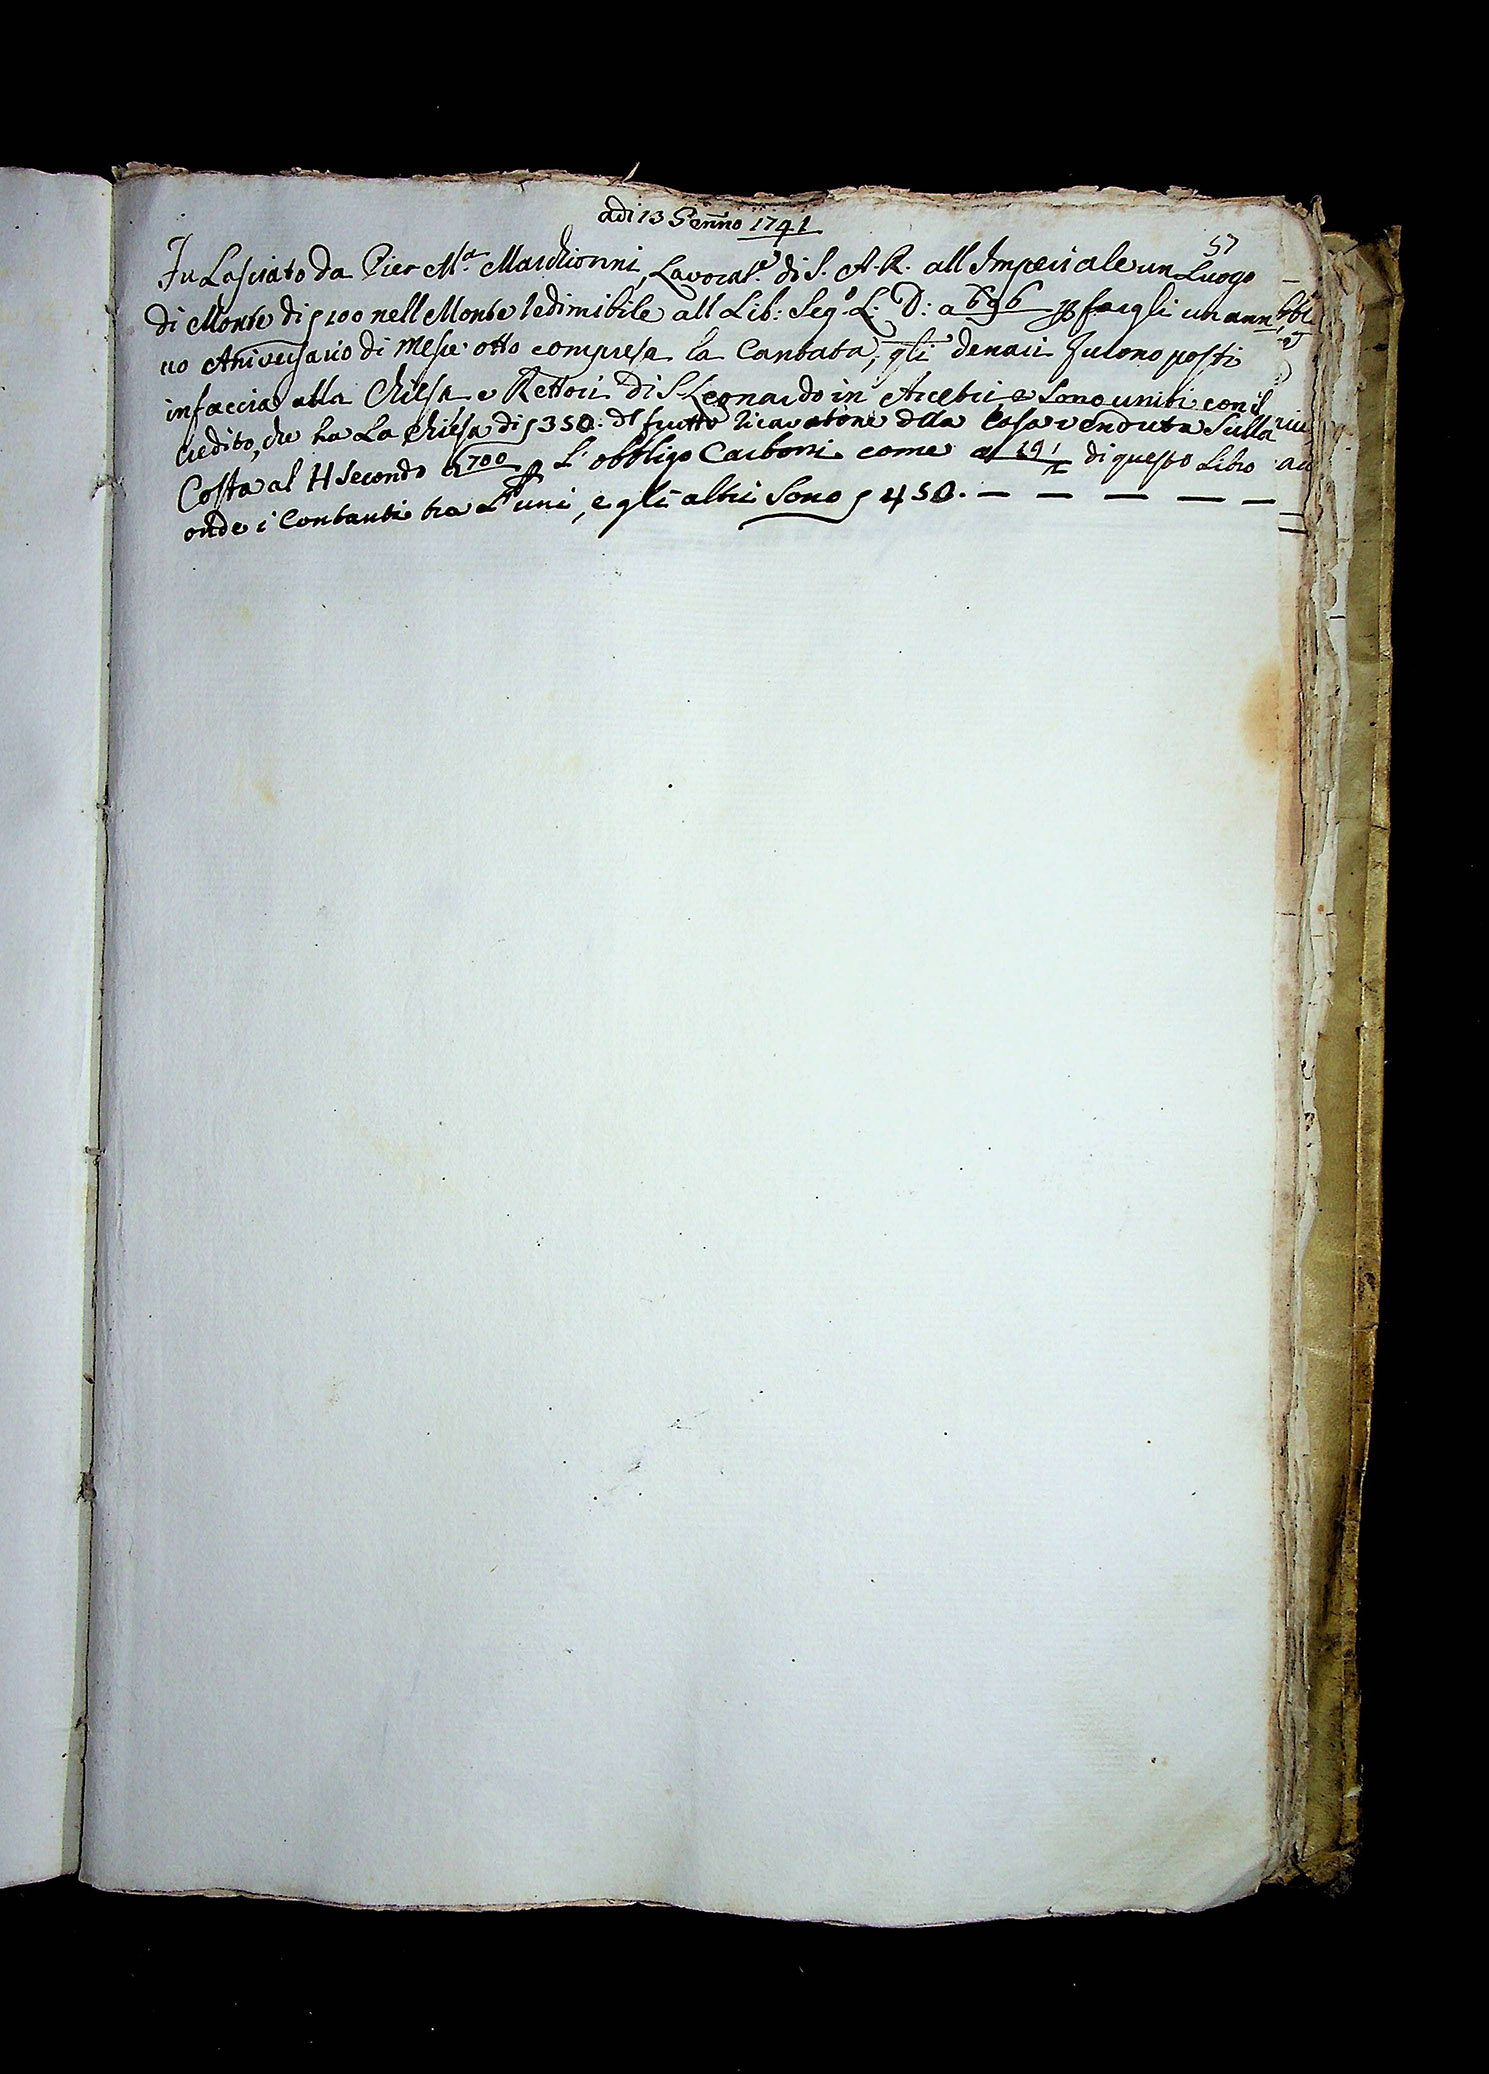 adi 13 Genno 1741
57
Fu Lasciato da Pier Ma. Marchionni, Lavorat.e di S. A. R. all Imperiale un Luogo
di Monte di s 100 nell Monte redimibile all Lib: Seg.o L: D: a 696 p fargli un ann
uo Aniversario di Messe otto compresa la Cantata, qli denari furono posti
infaccia alla Chiesa e Rettori di S Leonardo in Arcetri e sono uniti con il
credito, che ha La Chiesa di s 350: dl frutto ricavatone dlla Casa venduta Sulla
Costa al H secondo a 700 p L' obbligo Carboni come a 19 1/2 di questo Libro
onde i Contanti tra L'uni, e gli altri Sono s 450. — — — — —